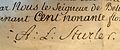 par Nous le Seigneur de Bois
nant Cent nonante flor
A. L. Sturler